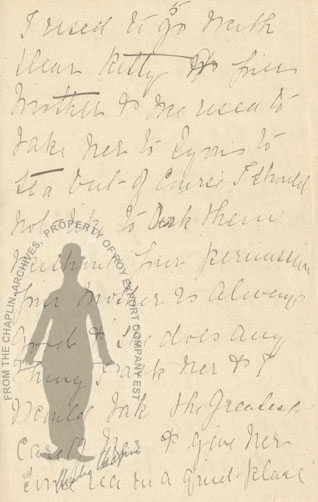 I used to go with
dear Kitty to
Mother & me used to
take her to Lyons to
tea but of course I should
not like to ask them
without permission
Mother is always
good & she does any
thing I ask her to & I
would take the greatest
care & to give her
tea in a quiet place
FROM THE CHAPLIN ARCHIVES. PROPERTY OF ROY EXPORT COMPANY EST
Charlie Chaplin